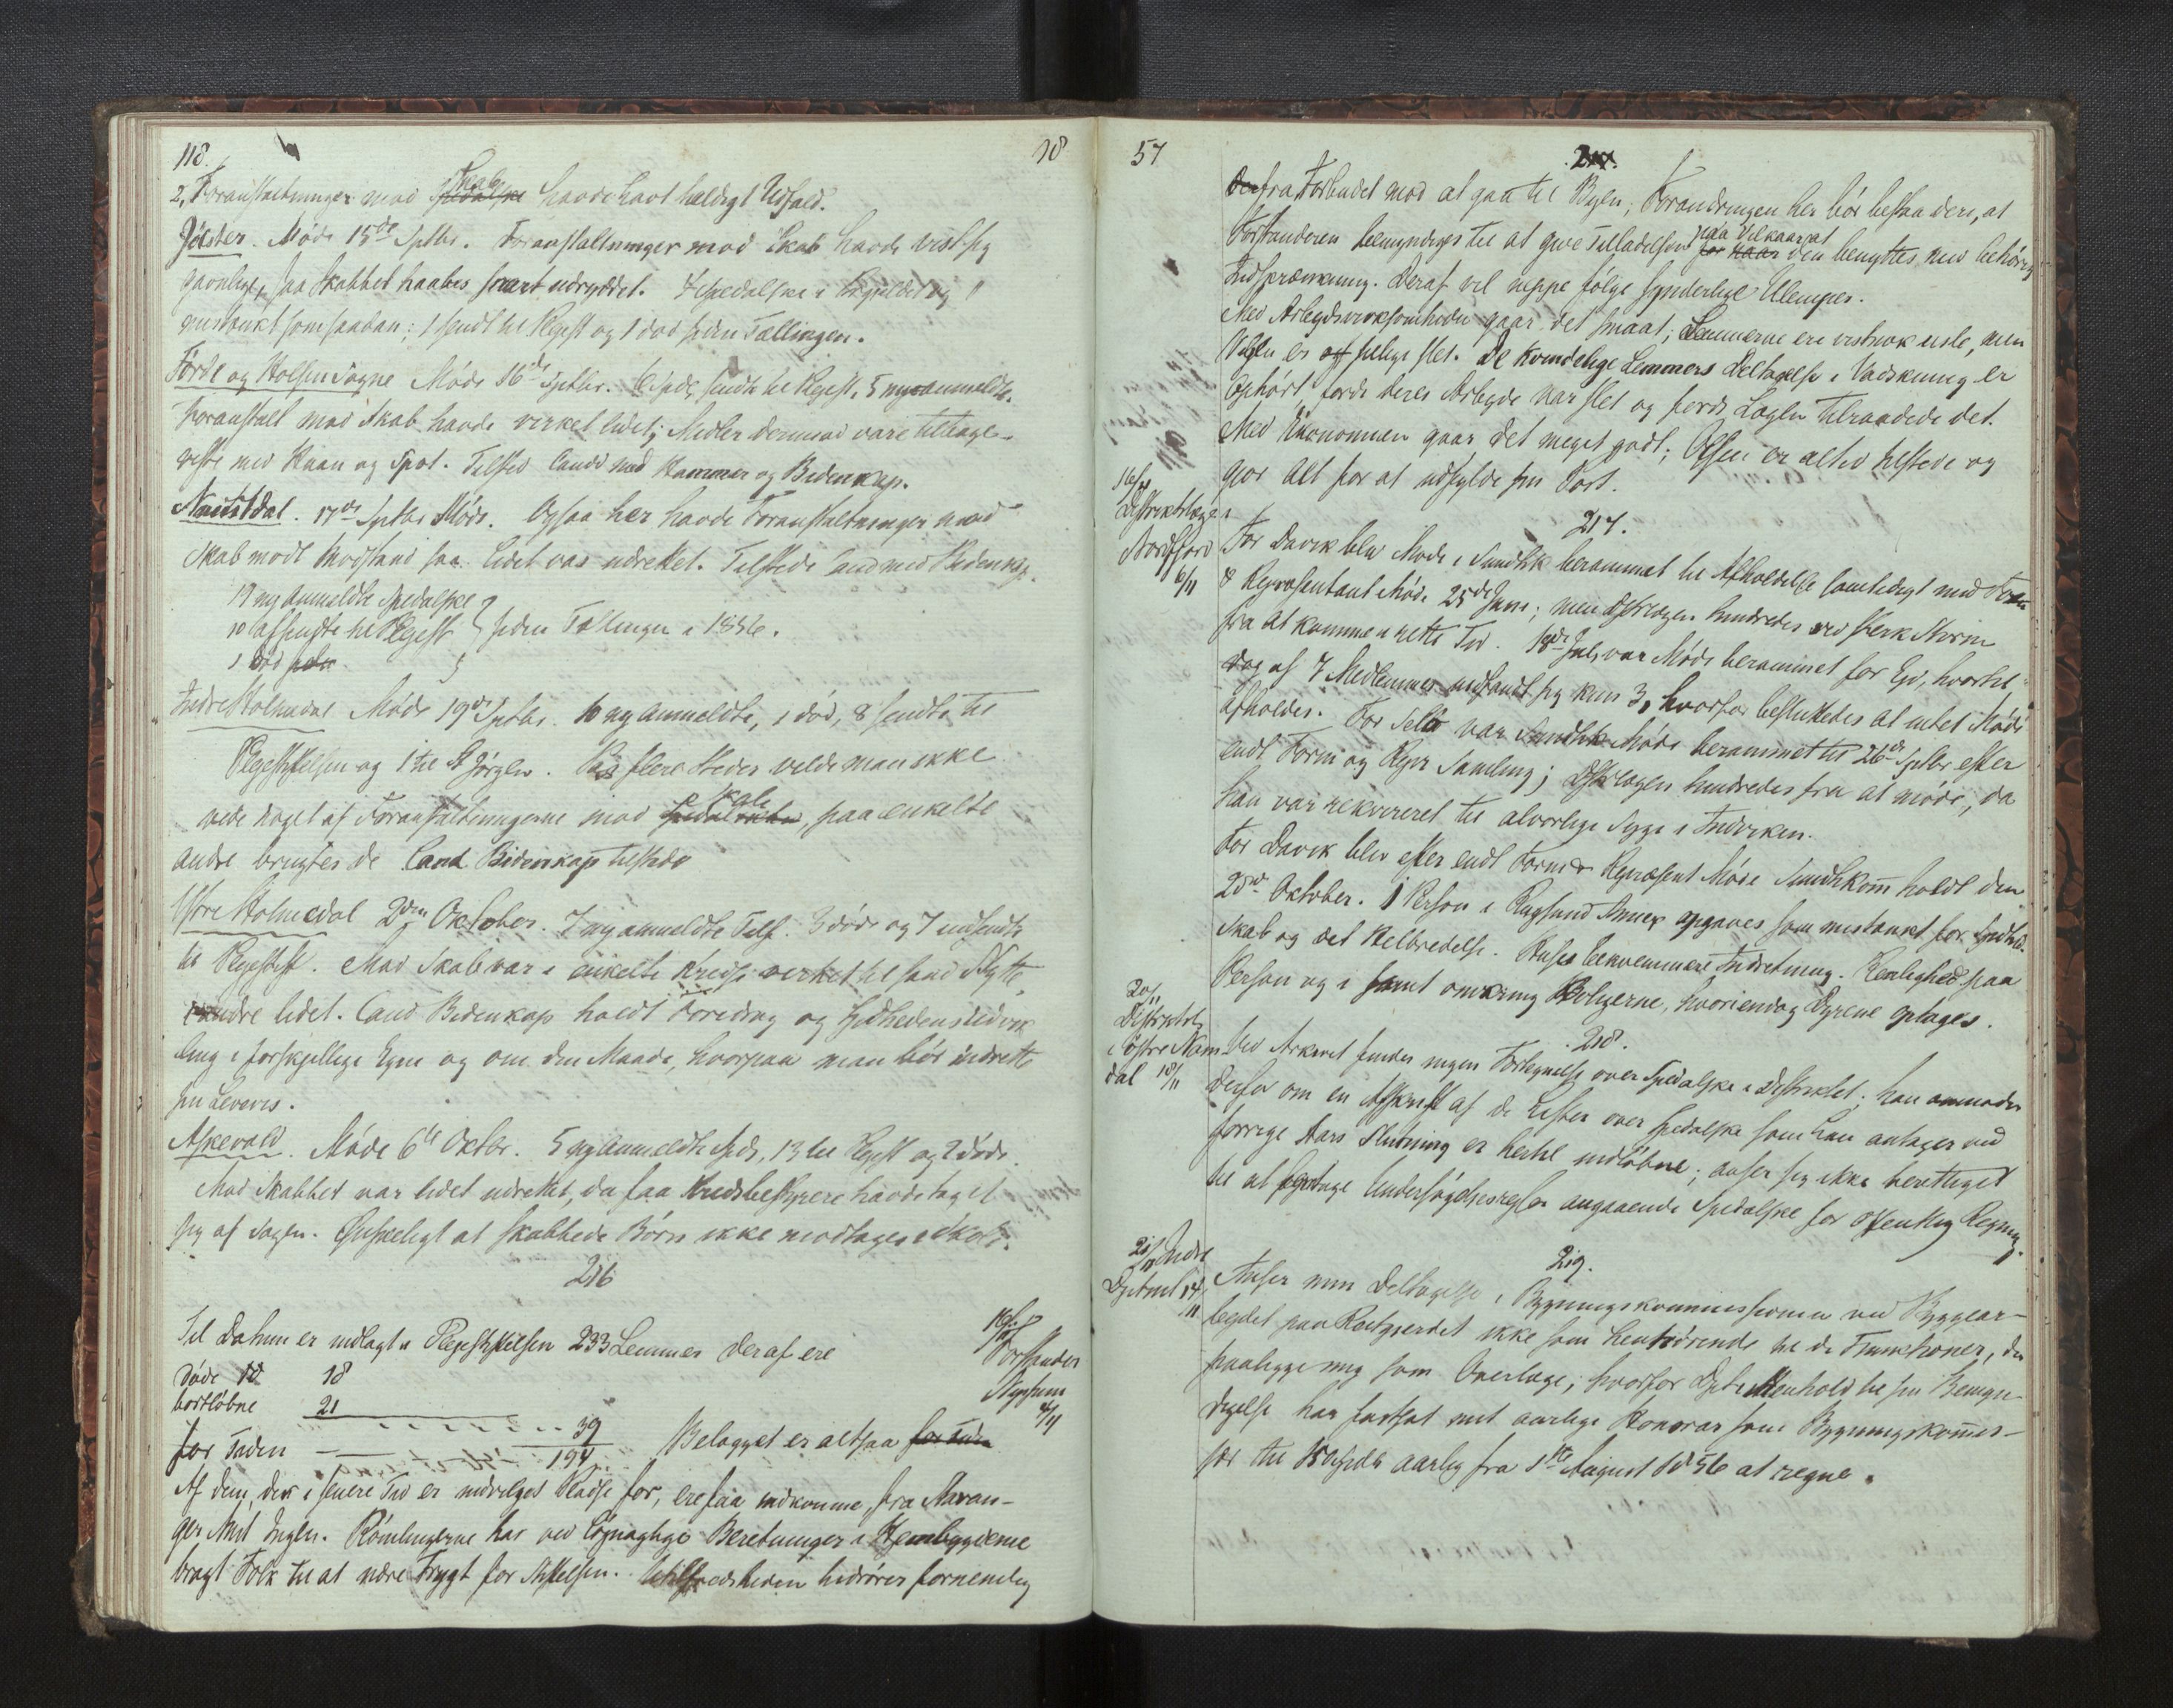 118.
18
2, Foranstaltninger mod Skab havde havt heldigt Udfald.
Jölster. Möde 15de Septbr. Foranstaltninger mod Skab havde vist sig
gavnlige, saa Skabbet haabes snart udryddet. 4 spedalske i
mistænkt som saadan; 1 sendt til Plejest og 1 död siden Tællingen.
Förde og Holsen Sogne Möde 16de Septbr. 6 Speds sendte til Plejest. 5 ny anmeldte.
Foranstalt mod Skab havde virket lidet; Midler derimod vare tilbage-
viste med Haan og Spot. Tilsted Candd med Hammer og Bidenkap.
Naustdal. 17de Septbr Möde. Ogsaa her havde Foranstaltninger mod
Skab mödt Modstand saa lidet var udrettet. Tilstede Cand med Bidenkap.
19 ny anmeldte spedalske
10 afsendte til Plejest } siden Tællingen i 1856.
1 död siden
Indre Holmedal Möde 19de Septbr. 10 ny anmeldte, 1 död, 8 sendte til
Plejestiftelsen og 1 til St Jörgen. Paa flere Steder vilde man ikke
vide noget af Foranstaltningerne mod Skab, paa enkelte
andre brugtes de Cand Bidenkap tilstede
Ytre Holmedal 2den Oktober. 7 ny anmeldte Tilf. 3 döde og 7 indsendte
til Plejestift. Mod Skab var i enkelte Kredse virket til sand Nytte
i andre lidet. Cand Bidenkap holdt Foredrag og Spdhedens Udvik
ling i forskjellige Egne og om den Maade, hvorpaa man bör indrette
sin Levevis.
Askevold. Möde 6te Oktbr. 5 ny anmeldte Speds, 13 til Plejest og 2 döde.
Mod Skabbet var lidet udrettet, da faa Kredsbestyrere havde taget
sig af Sagen. Önskeligt at skabbede Börn ikke modtages i Skole.
216
Til Datum er indlagt i Plejestiftelsen 233 Lemmer deraf ere
Forstander
4/11
Döde 18
bortlöbne 21
39
for Tiden 194 Belægget er altsaa for Tiden
Af dem, der i senere Tid er indvilget Pladse for, ere faa indkomne, fra Stavan-
ger Amt Ingen. Römlingerne har ved lögnagtige Beretninger i Hjembygderne
bragt Folk til at nære Frygt for Stiftelsen. Utilfredsheden hidrörer fornemlig
57
217.
fra Forbudet mod at gaa til Byen; Forandringen her bör bestaa deri, at
Forstanderen bemyndiges til at give Tilladelsen paa Vilkaar at den benyttes med behörig
Indskrænkning. Deraf vil neppe fölge synderlige Ulemper.
Med Arbejdsvirksomheden gaar det smaat; Lemmerne ere vistnok usle, men
Viljen er og saa slet. De kvindelige Lemmers Deltagelse i Vadskning er
Ophört fordi deres Arbejde var slet og fordi Lægen tilraadede det.
Med Ökonomien gaar det meget godt; Olsen er altid tilstede og
gjör Alt for at udfylde sin Post.
16/11
Distriktslægen
Nordfjord
6/11
217.
For Davik blev Möde i Sundhk berammet til Afholdelse samtidigt med Form
& Repræsentant Möde 25de Juni; men Distrlægen hindredes ved stærk Storm
fra at komme i rette Tid. 18de Juli var Möde berammet for Eid, hvortil
dog af 7 Medlemmer indfandt sig kun 3, hvorfor besluttedes at intet Möde
afholdes. For Selö var Sundhk Möde berammet til 26de Septbr efter
endt Form og Repr Samling; Distrlægen hindredes fra at möde, da
han var rekvireret til alvorlige Syge i Indviken.
For Davik blev efter endt Form & Repræsent Möde Sundhkom holdt den
23de Oktober. 1 Person i Rugsund Annex opgaves som mistænkt for Spedh.
Skab og det Helbredelse. Huses bekvemmere Indretning. Renlighed paa
Person og i samt omkring Boligerne, hvoriendog Dyrene optages.
20/11
Distriktsl
i Östre Nam
dal 18/11
218.
Ved Arkivet findes ingen Fortegnelse over Spedalske i Distriktet; han anmoder
derfor om en Afskrift af de Lister over Spedalske som han antager ved
forrige Aars Slutning er hertil indlöbne; anser sig ikke berettiget
til at foretage Undersögelsesrejser angaaende Spedalske for offentlig Regning.
21/11 Indre
Dptmt 14/11
219.
Anser min Deltagelse i Bygningskommissionen ved Byggear-
bejdet paa Reitgjerdet ikke som henhörende til de Funktioner, der
paaligge mig som Overlæge; hvorfor Dpt i Henhold til sin Bemyn-
digelse har fastsat mit aarlige Honorar som Bygningskommis-
sær til 150 Spdlr aarlig fra 1ste August 1856 at regne.